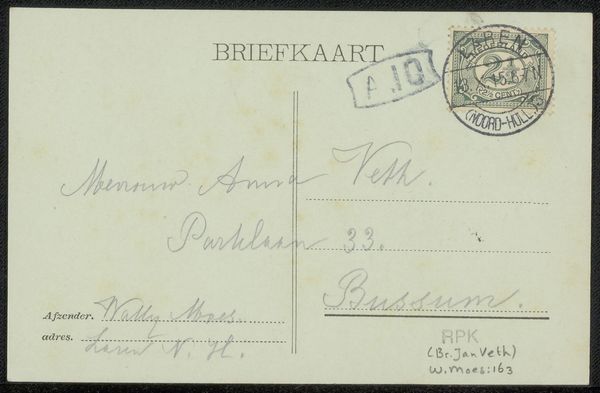 BRIEFKAART
LAREN
NEDERLAND
2½
(2½ CENT)
(NOORD-HOLL.)
Mevrouw Anna Veth.
Parklaan 33.
Bussum.
Afzender. Wally Moes.
adres. Laren N. H.
RPK
(Br. Jan Veth)
W. Moes: 163